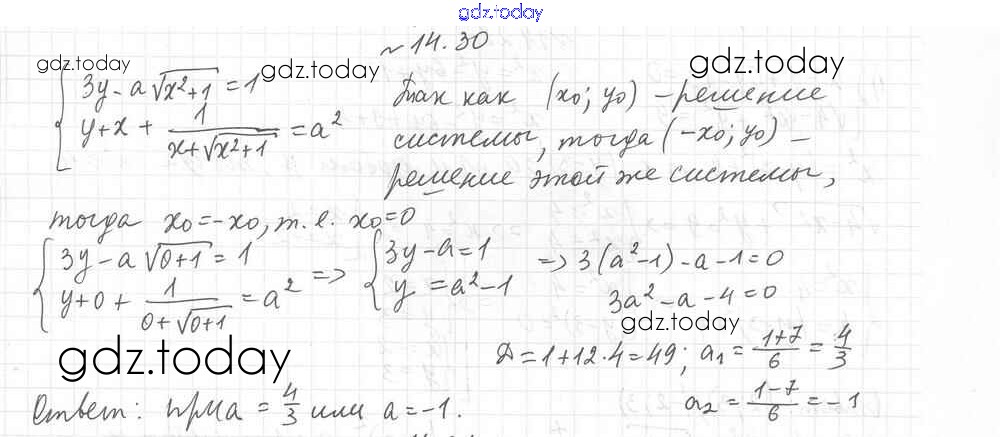 gdz.today
~ 14.30
gdz.today gdz.today gdz.today
{ 3y - a√(x²+1) = 1
{ y + x + 1/(x+√(x²+1)) = a²
Так как (x₀; y₀) – решение
системы, тогда (-x₀; y₀) –
решение этой же системы,
тогда x₀ = -x₀, т. е. x₀ = 0
{ 3y - a√(0+1) = 1
{ y + 0 + 1/(0+√(0+1)) = a²
=> { 3y - a = 1
{ y = a² - 1
=> 3(a² - 1) - a - 1 = 0
3a² - a - 4 = 0
gdz.today
gdz.today
Д = 1 + 12·4 = 49; a₁ = (1+7)/6 = 4/3
a₂ = (1-7)/6 = -1
Ответ: при a = 4/3 или a = -1.